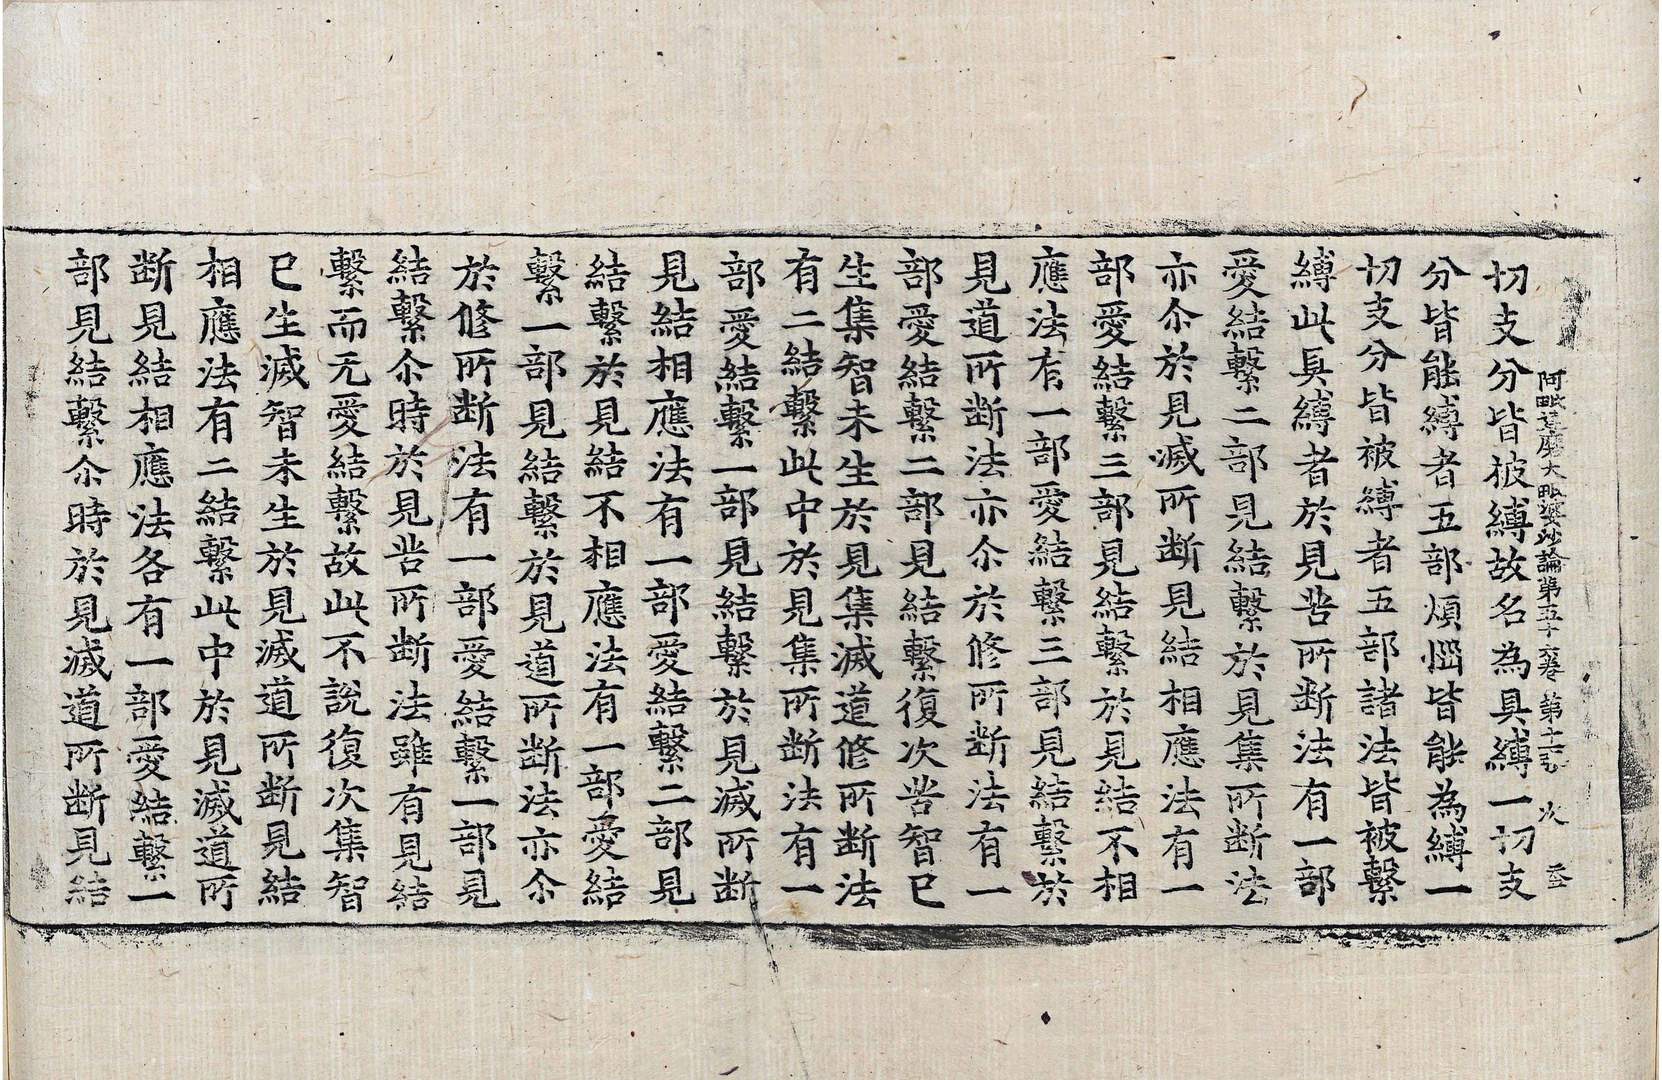 阿毗達磨大毗婆沙論第五十六卷　第十二張　次
切支分皆被縛故名為具縛一切支
分皆能縛者五部煩惱皆能為縛一
切支分皆被縛者五部諸法皆被繫
縛此具縛者於見苦所斷法有一部
愛結繫二部見結繫於見集所斷法
亦尒於見滅所斷見結相應法有一
部愛結繫三部見結繫於見結不相
應法有一部愛結繫三部見結繫於
見道所斷法亦尒於修所斷法有一
部愛結繫二部見結繫復次苦智已
生集智未生於見集滅道修所斷法
有二結繫此中於見集所斷法有一
部愛結繫一部見結繫於見滅所斷
見結相應法有一部愛結繫二部見
結繫於見結不相應法有一部愛結
繫一部見結繫於見道所斷法亦尒
於修所斷法有一部愛結繫一部見
結繫尒時於見苦所斷法雖有見結
繫而无愛結繫故此不說復次集智
已生滅智未生於見滅道所斷見結
相應法有二結繫此中於見滅道所
斷見結相應法各有一部愛結繫一
部見結繫尒時於見滅道所斷見結